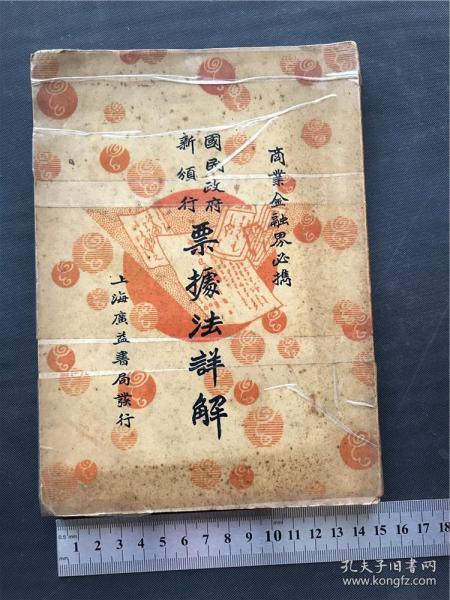 商業金融界必携
國民政府
新頒行
票據法詳解
上海廣益書局發行
0.5 mm
mm
1 2 3 4 5 6 7 8 9 10 11 12 13 14 15 16 17 18
孔夫子旧书网
www.kongfz.com